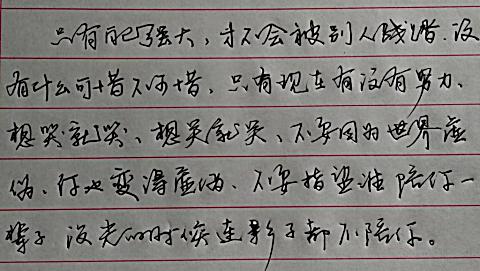 只有自己强大，才不会被别人践踏.没
有什么可惜不可惜，只有现在有没有努力、
想哭就哭、想笑就笑、不要因为世界虚
伪、你也变得虚伪、不要指望谁陪你一
辈子 没光的时候连影子都不陪你。